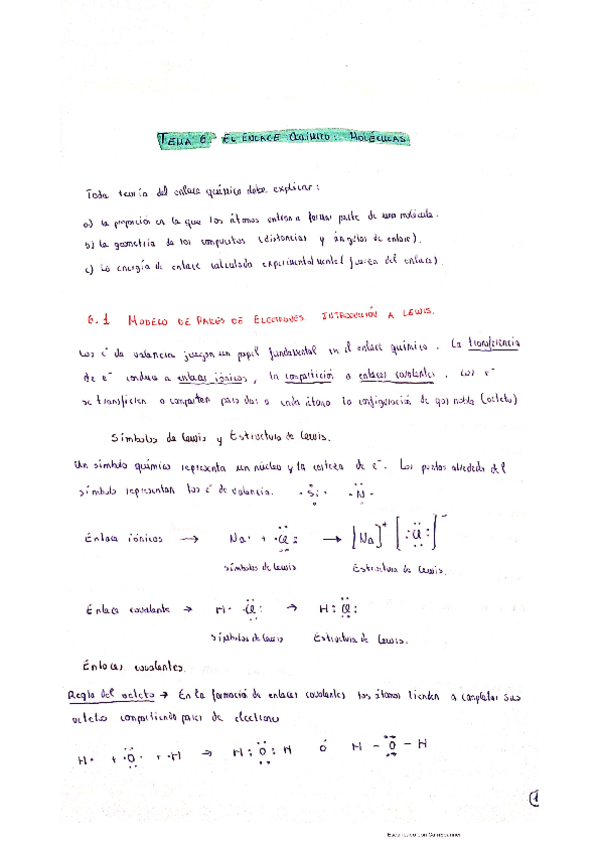 TEMA 6. EL ENLACE QUÍMICO: MOLÉCULAS
Toda teoría del enlace químico debe explicar:
a) la proporción en la que los átomos entran a formar parte de una molécula.
b) la geometría de los compuestos (distancias y ángulos de enlace).
c) La energía de enlace calculada experimentalmente (fuerza del enlace)
6.1 MODELO DE PARES DE ELECTRONES. INTRODUCCIÓN A LEWIS.
Los e⁻ de valencia juegan un papel fundamental en el enlace químico. La transferencia
de e⁻ conduce a enlaces iónicos, la compartición a enlaces covalentes. Los e⁻
se transfieren o comparten para dar a cada átomo la configuración de gas noble (octeto)
Símbolos de Lewis y Estructura de Lewis.
Un símbolo químico representa un núcleo y la corteza de e⁻. Los puntos alrededor del
símbolo representan los e⁻ de valencia. ·Si· ·N·
Enlace iónicos → Na· + ·Cl: → [Na]⁺ [:Cl:]⁻
símbolos de Lewis Estructura de Lewis.
Enlace covalente → H· ·Cl: → H:Cl:
símbolos de Lewis Estructura de Lewis.
Enlaces covalentes.
Regla del octeto → En la formación de enlaces covalentes los átomos tienden a completar sus
octetos compartiendo pares de electrones
H· + ·O· + ·H → H:O:H ó H-O-H
1
Escaneado con CamScanner